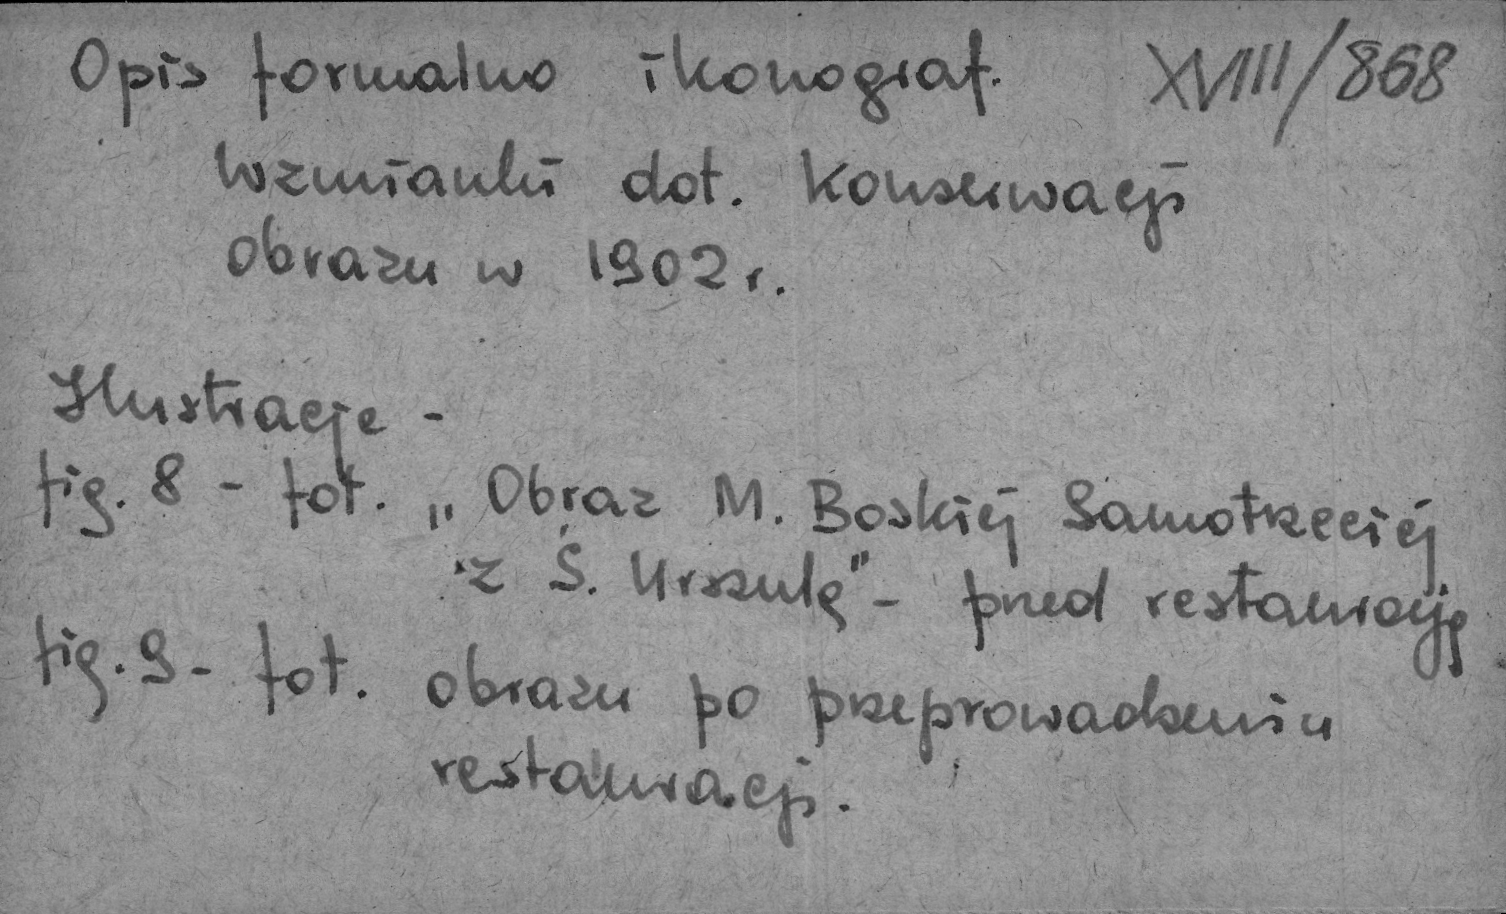 Opis formalno ikonograf. XVIII/868
Wzmianki dot. konserwacji
obrazu w 1902 r.
Ilustracje -
fig. 8 - fot. „Obraz M. Boskiej Samotrzeciej
z Ś. Urszulą" - przed restauracją
fig. 9 - fot. obrazu po przeprowadzeniu
restauracji.